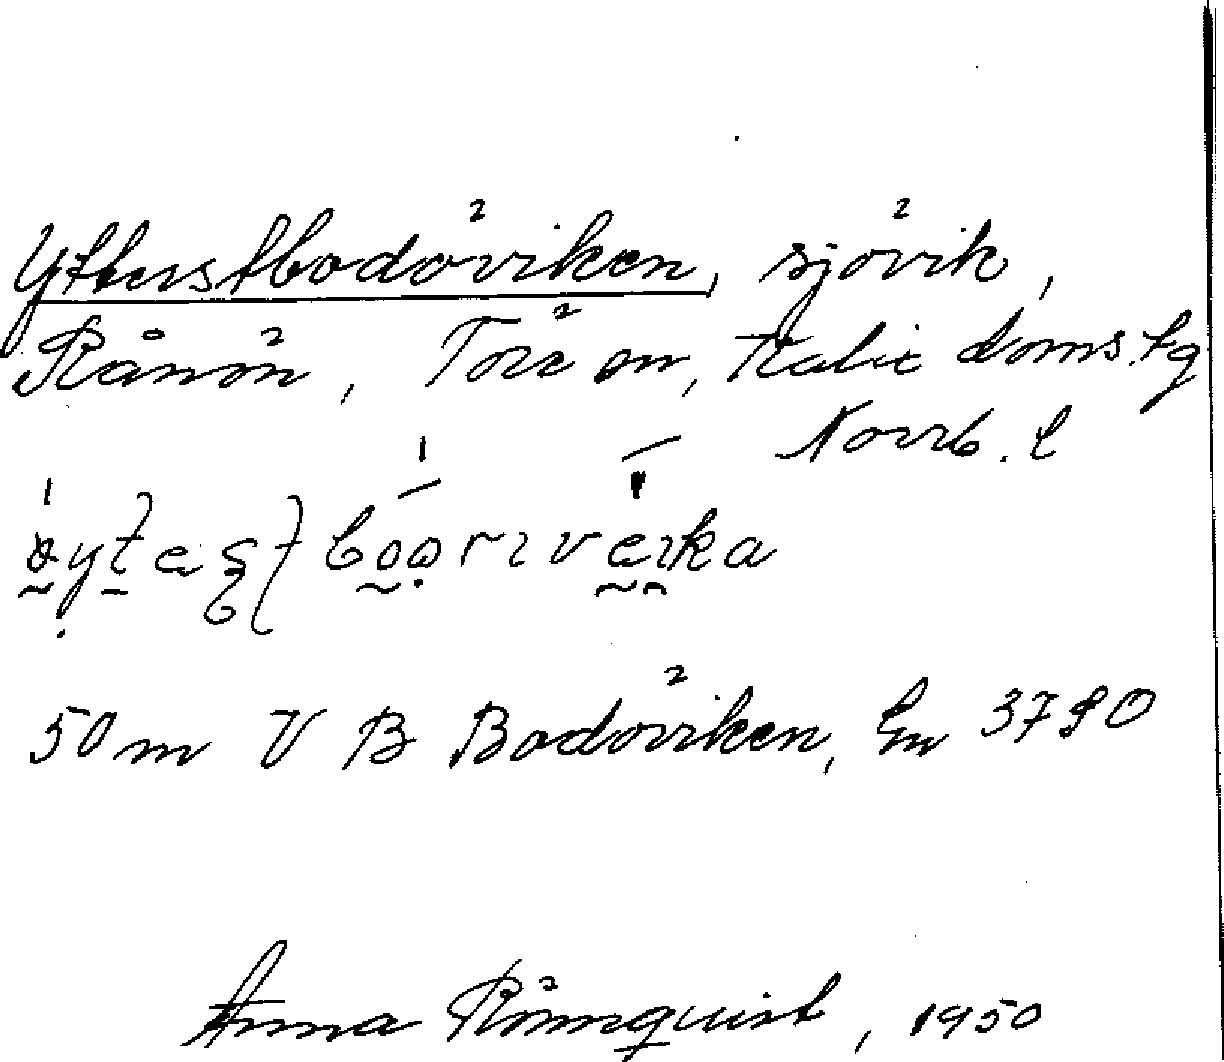 Ytterstbodöviken, sjövik,
Rånön, Töre sn, Kalix doms.tg
Norrb. l
50 m V B Bodöviken, En 3790
Anna Rönnquist, 1950